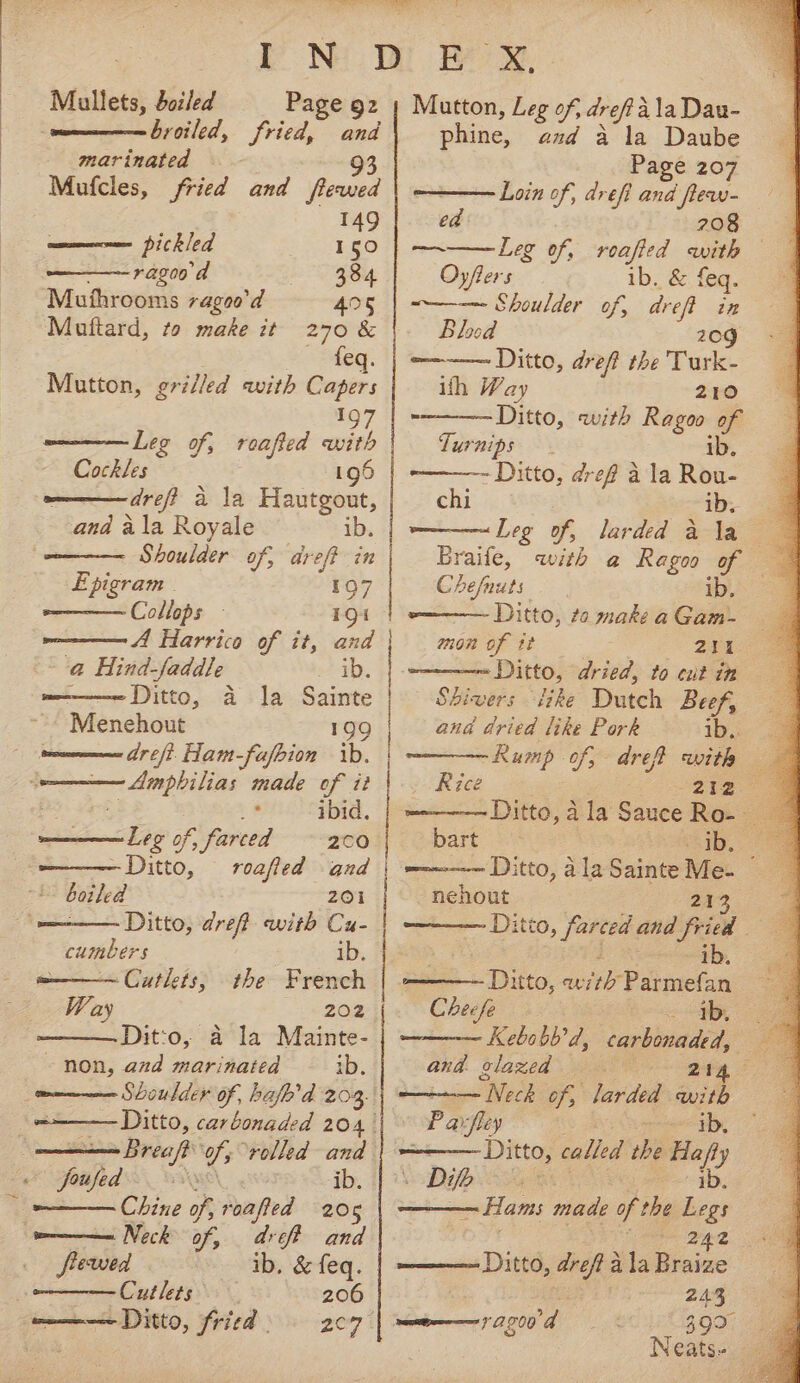 INDEX.
Mullets, boiled Page 92
——broiled, fried, and
marinated 93
Muſcles, fried and ſtewed
149
—— pickled 150
——ragoo'd 384
Muſhrooms ragoo'd 405
Muſtard, to make it 270 &
ſeq.
Mutton, grilled with Capers
197
——Leg of, roaſted with
Cockles 196
——dreſt à la Hautgout,
and à la Royale ib.
—— Shoulder of, dreſt in
Epigram 197
——Collops 191
——A Harrico of it, and
a Hind-ſaddle ib.
——Ditto, à la Sainte
Menehout 199
——dreſt Ham-faſhion ib.
——Amphilias made of it
ibid.
——Leg of, farced 200
——Ditto, roaſted and
boiled 201
——Ditto, dreſt with Cu-
cumbers ib.
——Cutlets, the French
Way 202
——Ditto, à la Mainte-
non, and marinated ib.
——Shoulder of, haſh'd 203.
——Ditto, carbonaded 204
——Breaſt of, rolled and
ſouſed ib.
——Chine of, roaſted 205
——Neck of, dreſt and
ſtewed ib. & ſeq.
——Cutlets 206
——Ditto, fried 207
Mutton, Leg of, dreſt à la Dau-
phine, and à la Daube
Page 207
——Loin of, dreſt and ſtew-
ed 208
——Leg of, roaſted with
Oyſters ib. & ſeq.
——Shoulder of, dreſt in
Blood 209
——Ditto, dreſt the Turk-
iſh Way 210
——Ditto, with Ragoo of
Turnips ib.
——Ditto, dreſt à la Rou-
chi ib.
——Leg of, larded à la
Braiſe, with a Ragoo of
Cheſnuts ib.
——Ditto, to make a Gam-
mon of it 211
——Ditto, dried, to cut in
Shivers like Dutch Beef,
and dried like Pork ib.
——Rump of, dreſt with
Rice 212
——Ditto, à la Sauce Ro-
bart ib.
——Ditto, à la Sainte Me-
nehout 213
——Ditto, farced and fried
ib.
——Ditto, with Parmeſan
Cheeſe ib.
——Kebobb'd, carbonaded,
and glazed 214
——Neck of, larded with
Parſley ib.
——Ditto, called the Haſty
Diſh ib.
——Hams made of the Legs
242
——Ditto, dreſt à la Braize
243
——ragoo'd 390
Neats-